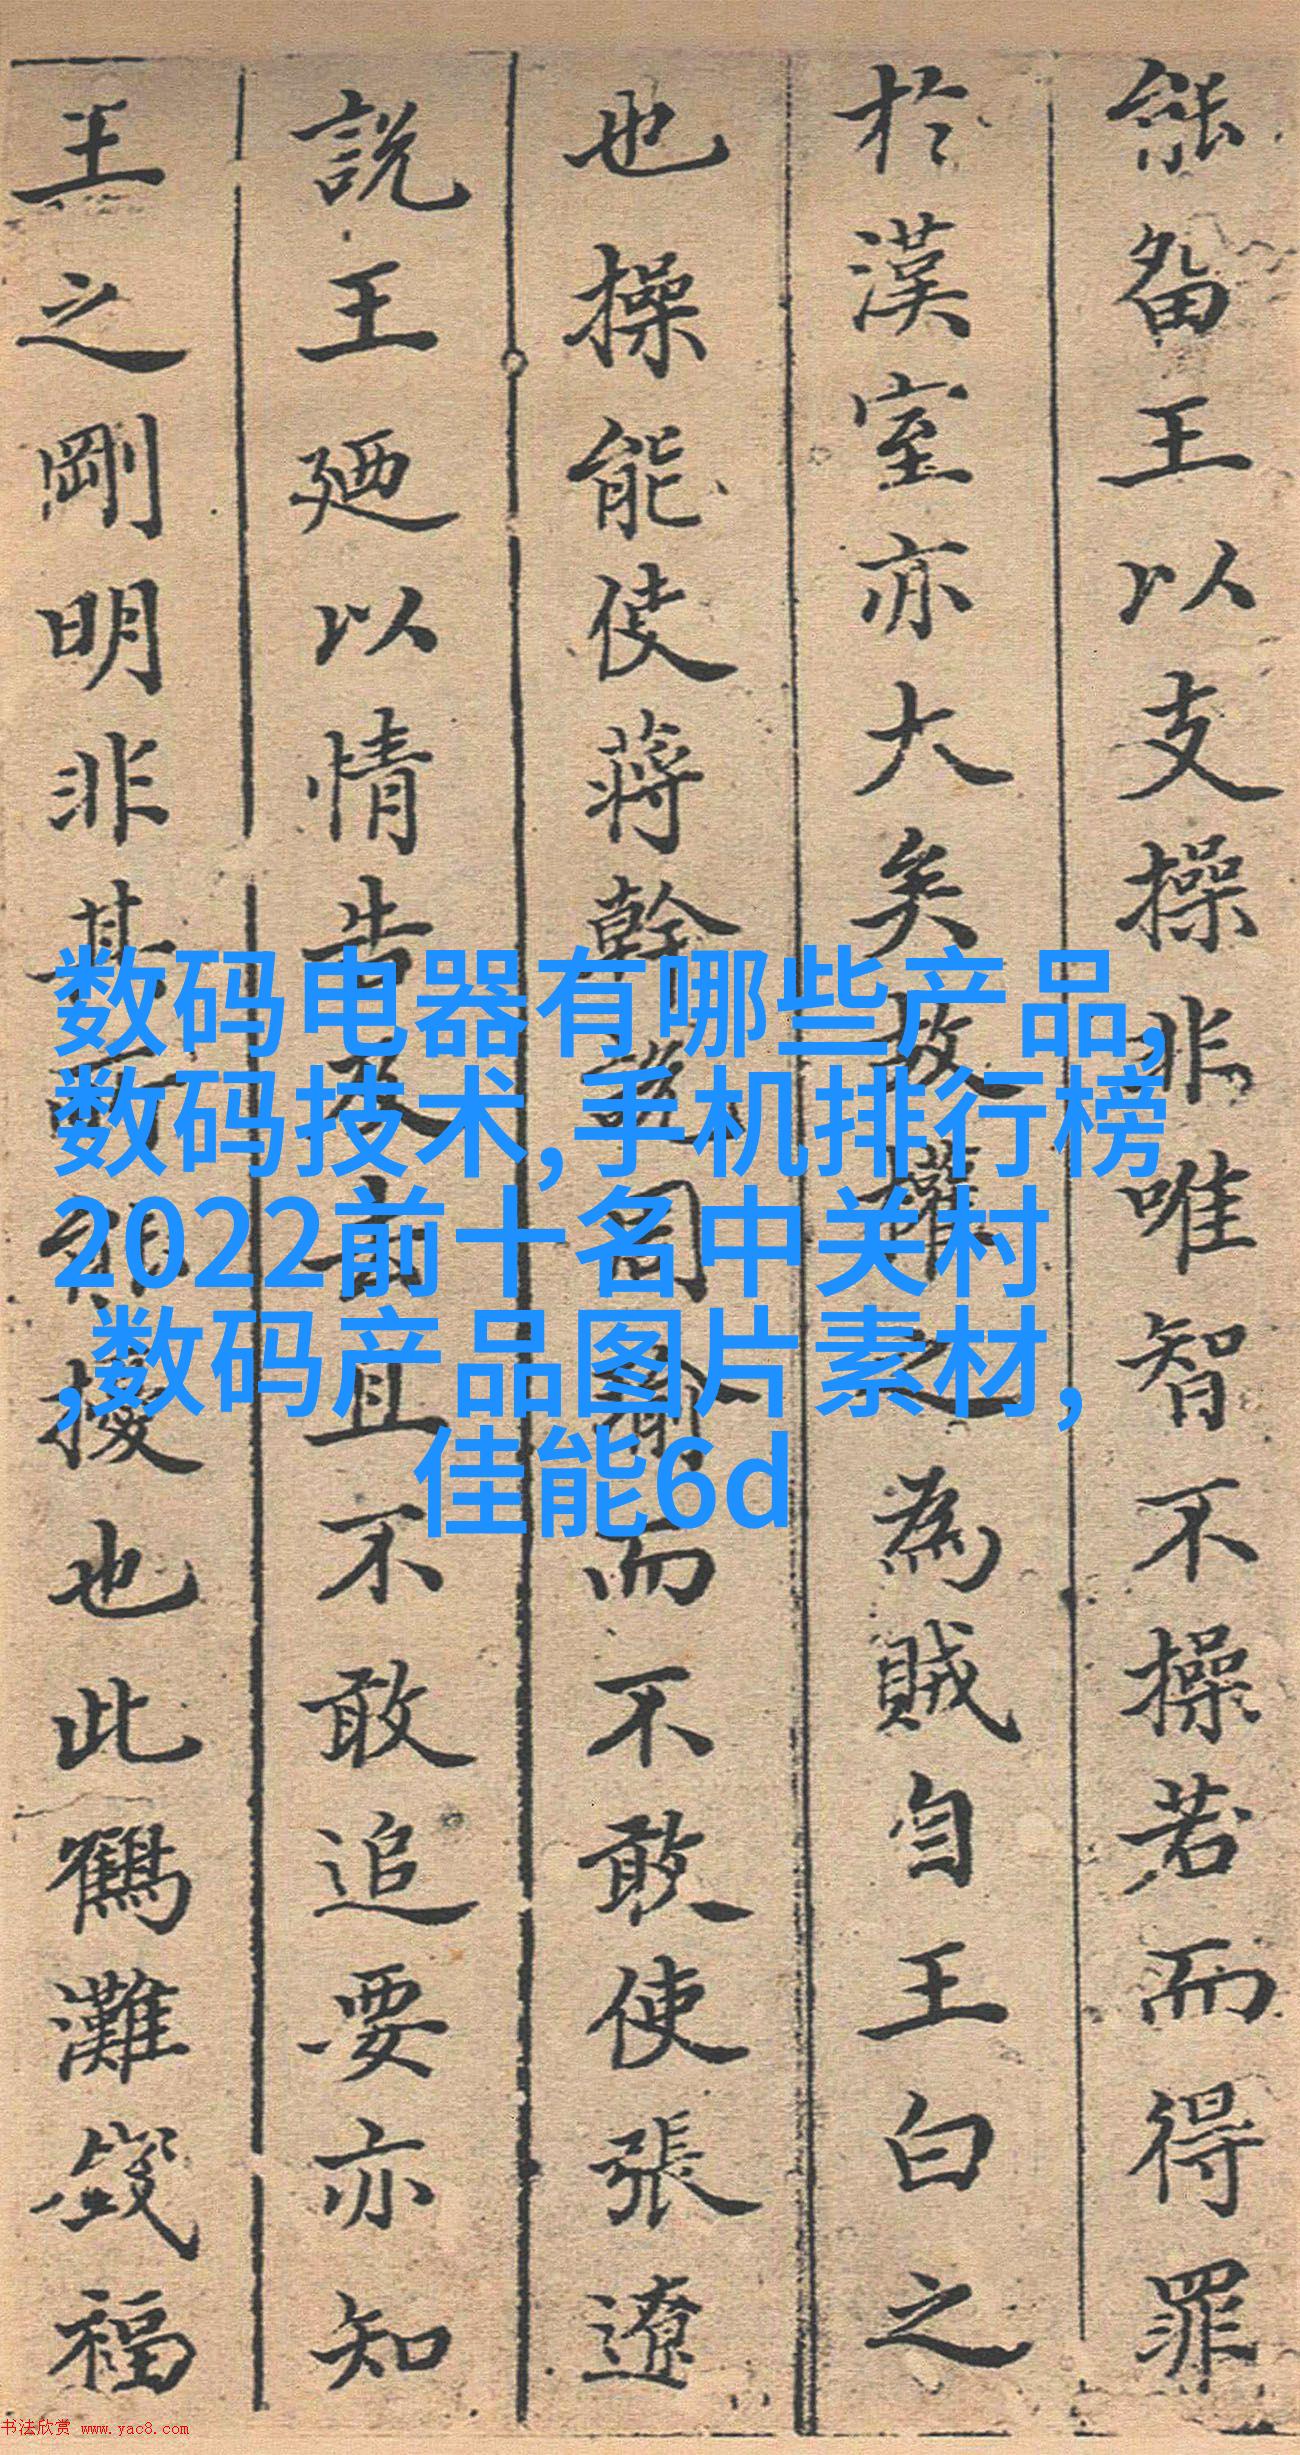 能留王以支操非唯智不操若而得罪
於漢室亦大矣故權之為賊自王白之
也操能使蔣幹說周瑜而不敢使張遼
說王廼以情告且不敢追要亦知
王之剛明非其所能擾也此鶴灘福
数码电器有哪些产品,
数码技术,手机排行榜
2022前十名中关村
,数码产品图片素材,
佳能6d
书法欣赏 www.yac8.com